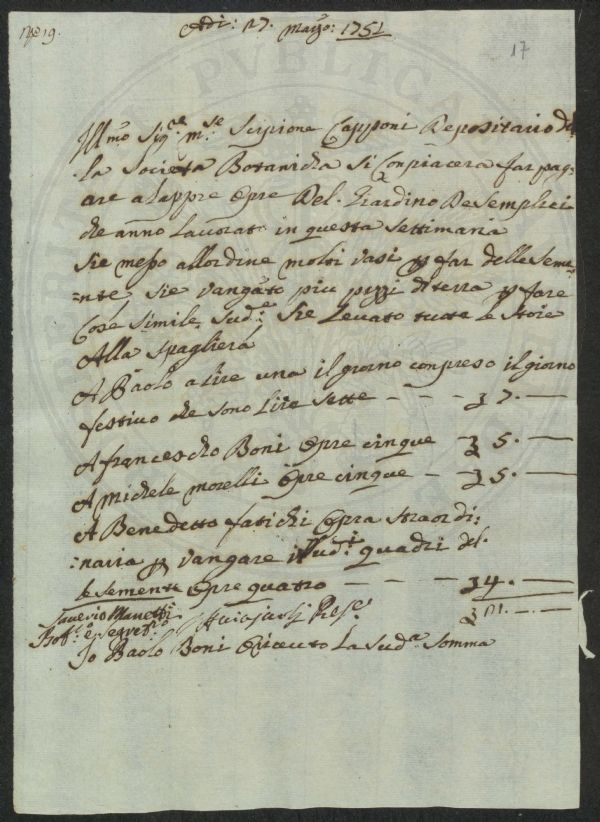 Adi: 27. Marzo: 1751
17
Ill:mo Sig:re M:se Scipione Capponi Depositario del
la Societa Botanicha Si Conpiacera far pag=
are a lappre Opre Del Giardino De Semplici
che anno Lauorato in questa Settimana
Sie messo allordine molti vasi p far delle Seme=
=nte, Sie vangato piu pezzi di terra p fare
Cose Simile, Sud:e Sie Leuato tutte le Stoie
Alla Spagliera
A Paolo a lire una il giorno conpreso il giorno
festiuo che sono lire Sette — — — 7. —
A francescho Boni Opre cinque — 5. —
A Michele Morelli Opre cinque — 5. —
A Benedetto fatichi Opra Straordi:
:naria p vangare i Sud:i quadri del
le Semente Opre quatro — — — 4. —
Sauerio Manetti
Prof:e e Segret:o
21. — —
Io Paolo Boni O riceuto La Sud:a Somma
PVBLICA